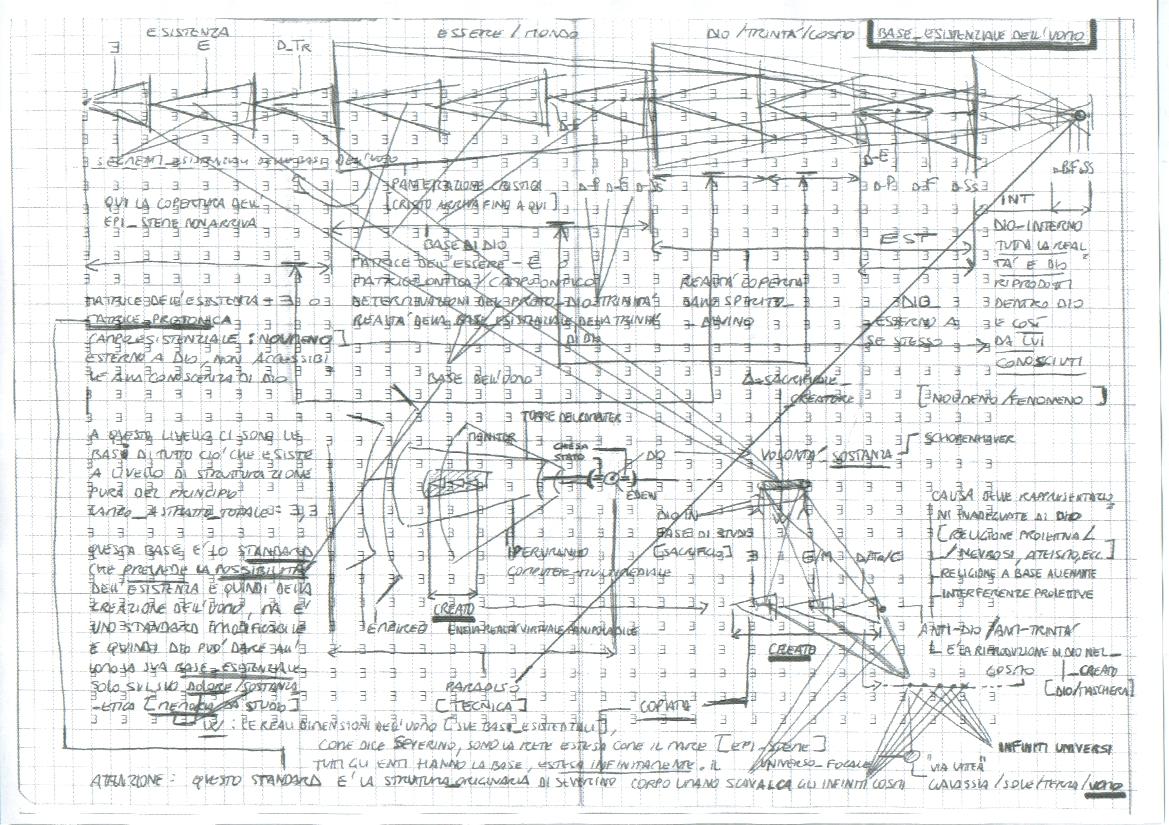 ESISTENZA
ESSERE / MONDO
DIO / TRINITÀ / COSMO
BASE_ESISTENZIALE DELL'UOMO
Ǝ
E
D_TR
SEGMENTI_ESISTENZIALI DELLA BASE DELL'UOMO
QUI LA COPERTURA DELL'
EPI_STEME NON ARRIVA
[CRISTO ARRIVA FINO A QUI]
D-P D-F D-SS
D-E
D-P D-F D-SS
D-BF SS
INT
EST
DIO-INTERNO
TUTTA LA REAL
TÀ E DIO
RIPRODOTTI
DENTRO DIO
E COSÌ
DA LUI
CONOSCIUTI
DIO
ESTERNO A
SE STESSO
[NOUMENO / FENOMENO]
BASE DI DIO
MATRICE DELL'ESSERE - E O
MATRICE ONTICA / CAMPO ONTICO
DETERMINAZIONI DEL PROTO_DIO TRINITÀ
REALTÀ DELLA BASE ESISTENZIALE DELLA TRINITÀ
DI DIO
REALTÀ COPERTA
DALLO SPIRITO_
DIVINO
MATRICE DELL'ESISTENZA - Ǝ O
MATRICE_PROTONICA
CAMPO ESISTENZIALE : NOUMENO]
ESTERNO A DIO, NON ACCESSIBI
LE ALLA CONOSCENZA DI DIO
BASE DELL'UOMO
A QUESTO LIVELLO CI SONO LE
BASI DI TUTTO CIÒ CHE ESISTE
A LIVELLO DI STRUTTURAZIONE
PURA DEL PRINCIPIO
QUESTA BASE È LO STANDARD
CHE PREVEDE LA POSSIBILITÀ
DELL'ESISTENZA E QUINDI DELLA
CREAZIONE DELL'UOMO, MA È
UNO STANDARD IMMODIFICABILE
E QUINDI DIO PUÒ DARE ALL'
UOMO LA SUA BASE_ESISTENZIALE
SOLO SUL SUO DOLORE / SOSTANZA
-ETICA [MEMORIA DA STUDIO]
TORRE DEL COMPUTER
MONITOR
CHIESA
STATO
DIO
EDEN
IPERURANIO
COMPUTER-MULTIMEDIALE
CREATO
EMPIREO
ENELLA REALTÀ VIRTUALE MANIPOLABILE
PARADISO
[TECNICA]
COPIATA
Δ-SACRIFICALE_
CREATORE
VOLONTÀ_SOSTANZA
SCHOPENHAUER
DIO IN
BASE DI STUDIO
[SACRIFICIO]
Ǝ
E/M
D/TR/C
CREATO
CAUSA DELLE RAPPRESENTAZIO
NI INADEGUATE DI DIO
[RELIGIONE PROIETTIVA /
/ NEVROSI, ATEISMO, ECC.]
_RELIGIONE A BASE ALIENANTE
_INTERFERENZE PROIETTIVE
ANTI-DIO / ANTI-TRINITÀ
È LA RIPRODUZIONE DI DIO NEL_
COSMO
_CREATO
[DIO/MASCHERA]
INFINITI UNIVERSI
UNIVERSO_FOCALE
"VIA LATTEA"
GALASSIA / SOLE / TERRA / UOMO
: LE REALI DIMENSIONI DELL'UOMO (SUE BASE_ESISTENZIALI),
COME DICE SEVERINO, SONO LA RETE ESTESA COME IL MARE [EPI_STEME]
TUTTI GLI ENTI HANNO LA BASE, ESTESA INFINITAMENTE. IL
CORPO UMANO SCAVALCA GLI INFINITI COSMI
ATTENZIONE : QUESTO STANDARD È LA STRUTTURA_ORIGINARIA DI SEVERINO